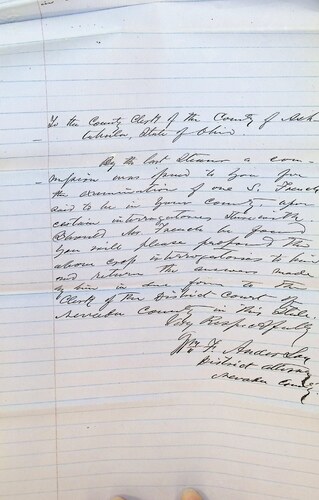 To the County Clerk of the County of Ash
tabula, State of Ohio
By the last Steamer a com-
mission was sent to you for
the examination of one S. French
said to be in your county, upon
certain interrogatories therewith.
Should Mr. French be found
you will please propound the
above cross interrogatories to him
and return the answers made
by him in due form to the
Clerk of the District Court of
Nevada County in this State.
Very Respectfully
Wm F. Anderson
District Attorney
Nevada County